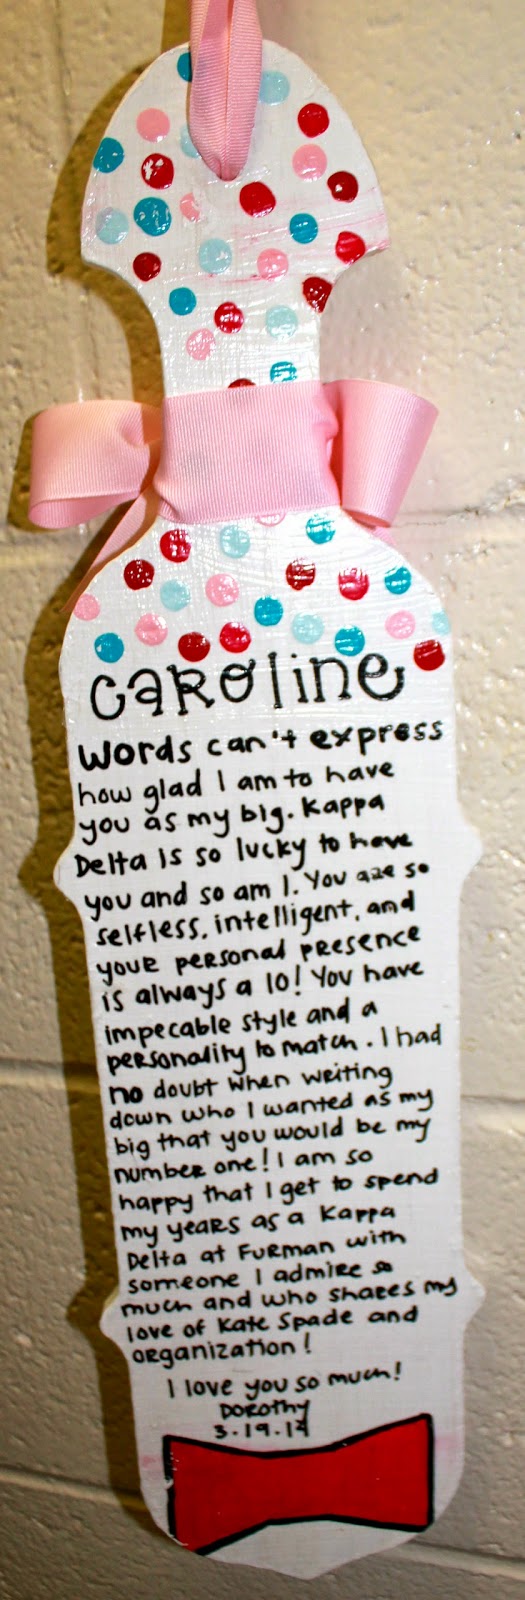 CAROLINE
Words can't express
how glad I am to have
you as my big. Kappa
Delta is so lucky to have
you and so am I. You are so
selfless, intelligent, and
your personal presence
is always a 10! You have
impecable style and a
personality to match. I had
no doubt when writing
down who I wanted as my
big that you would be my
number one! I am so
happy that I get to spend
my years as a Kappa
Delta at Furman with
someone I admire so
much and who shares my
love of Kate Spade and
organization!
I love you so much!
Dorothy
3.19.14